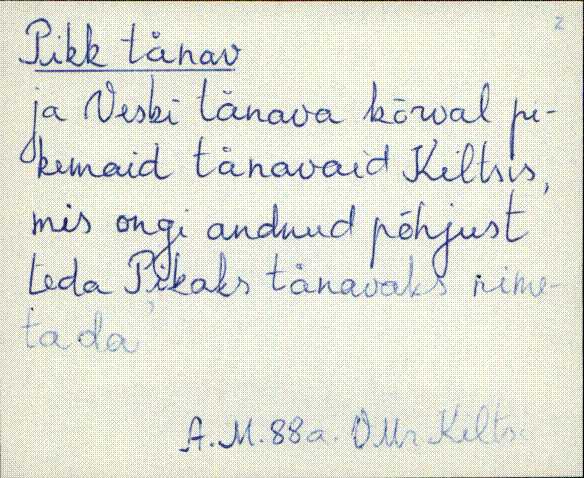 2
Pikk tänav
ja Veski tänava kõrval pi-
kemaid tänavaid Kiltsis,
mis ongi andnud põhjust
teda Pikaks tänavaks nime-
tada
A.M. 88a. VMr Kiltsi